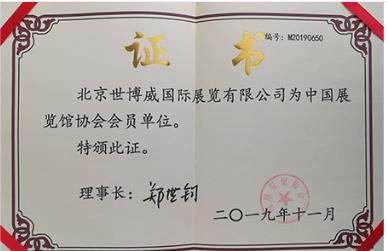 证书
编号：M20190650
北京世博威国际展览有限公司为中国展
览馆协会会员单位。
特颁此证。
理事长：郑世钧
二〇一九年十一月